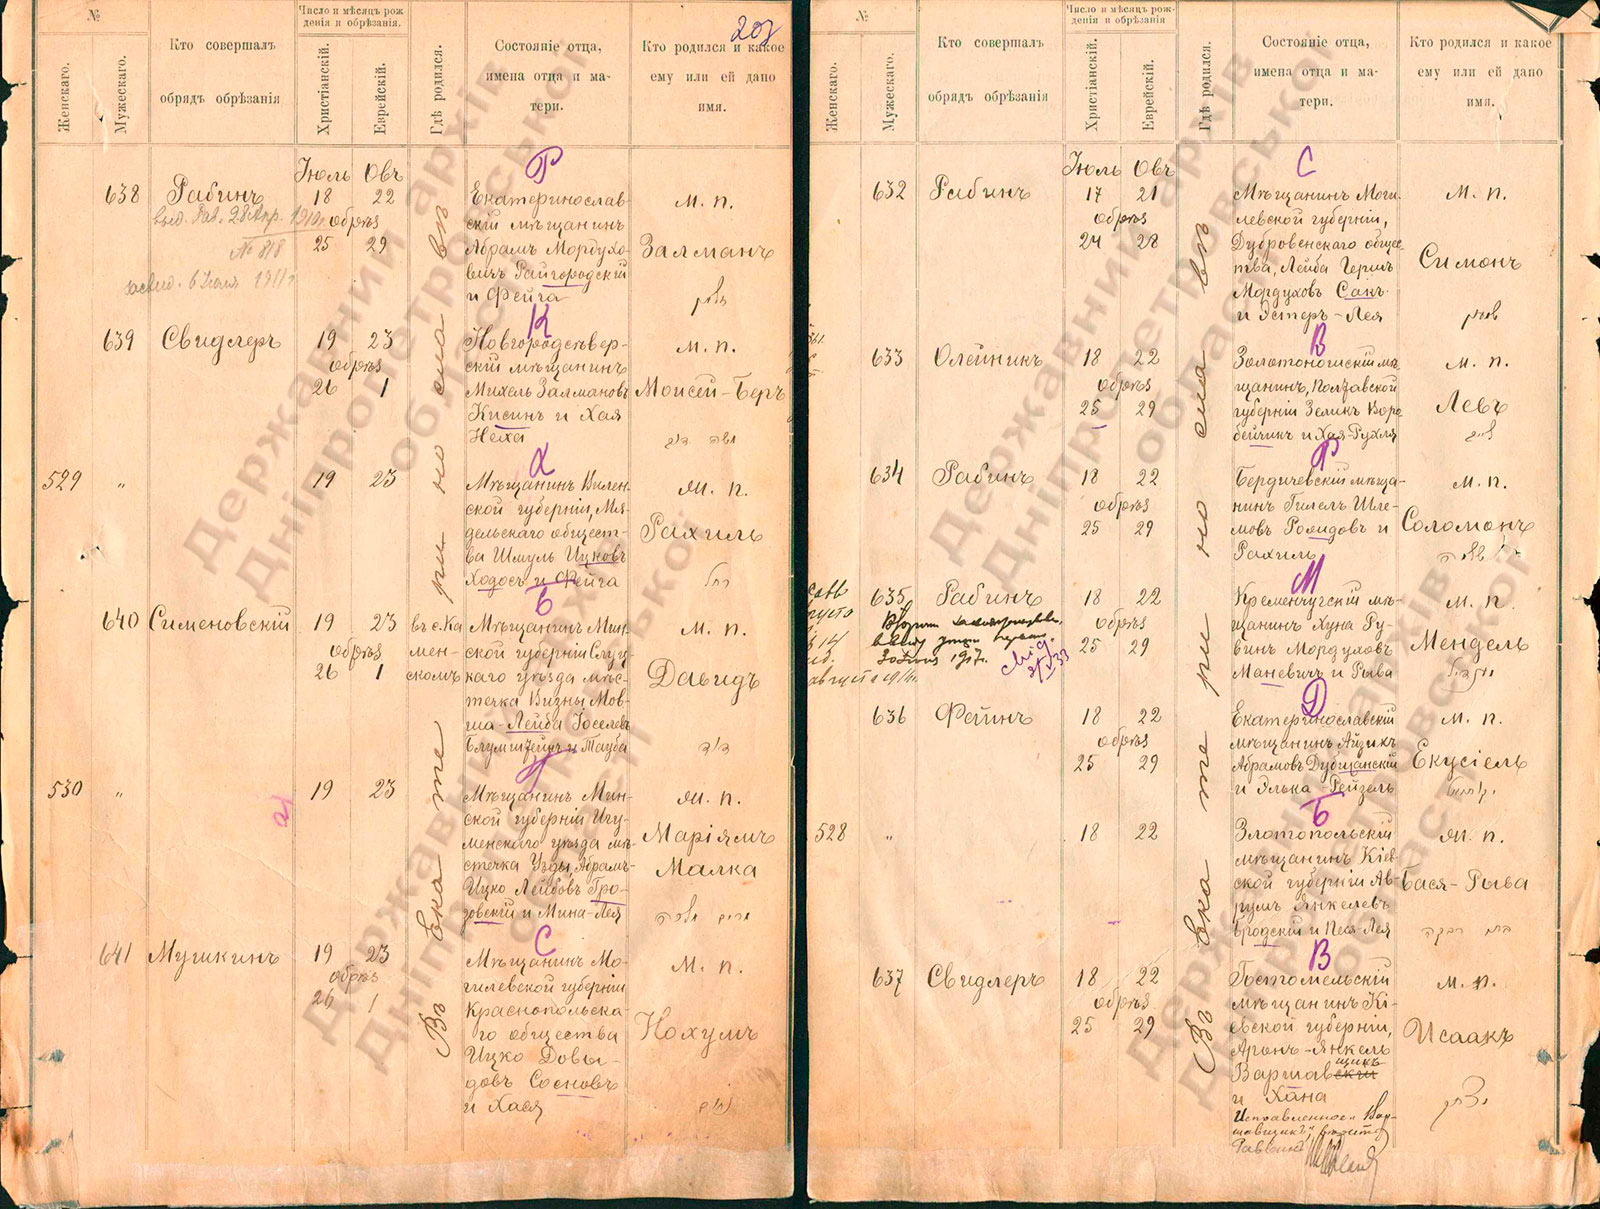 203
№
Женскаго.
Мужескаго.
Кто совершалъ
обрядъ обрѣзанія
Число и мѣсяцъ рож-
денія и обрѣзанія.
Христіанскій.
Еврейскій.
Гдѣ родился.
Состояніе отца,
имена отца и ма-
тери.
Кто родился и какое
ему или ей дано
имя.
Въ Екатеринославѣ
Р
Іюль Овъ
638 Рабинъ 18 22
обрѣз
25 29
выд. Рав. 28 Апр. 1910г.
№ 818
засвид. 6 1911г
Екатеринослав-
скій мѣщанинъ
Абрамъ Мордухо-
вичъ Райгородскій
и Фейга
М. п.
Залманъ
К
639 Свидлеръ 19 23
обрѣз
26 1
Новгородсѣвер-
скій мѣщанинъ
Михель Залмановъ
Кисинъ и Хая
Неха
М. п.
Моисей-Беръ
Х
529 „ 19 23
Мѣщанинъ Вилен-
ской губерніи, Мя-
дельскаго общест-
ва Шмуль Ицковъ
Ходосъ и Фейга
Ж. п.
Рахиль
רחל
Б
640 Сименовскій 19 23
обрѣз
26 1
въ с. Ка
мен-
скомъ
Мѣщанинъ Мин-
ской губерніи Слуц
каго уѣзда мѣс-
течка Вызны Мов-
ша-Лейба Іоселевъ
Блумштейнъ и Тауба
М. п.
Давидъ
דוד
530 „ 19 23
Мѣщанинъ Мин-
ской губерніи Игу-
менскаго уѣзда мѣ-
стечка Узды, Абрамъ-
Ицко Лейбовъ Гро-
зовскій и Мина-Лея
Ж. п.
Маріямъ
Малка
מרים מלכה
С
641 Мушкинъ 19 23
обрѣз
26 1
Мѣщанинъ Мо-
гилевской губерніи
Краснопольска-
го общества
Ицко Довы-
довъ Сосновъ
и Хася
М. п.
Нохумъ
נחום
№
Женскаго.
Мужескаго.
Кто совершалъ
обрядъ обрѣзанія
Число и мѣсяцъ рож-
денія и обрѣзанія.
Христіанскій.
Еврейскій.
Гдѣ родился.
Состояніе отца,
имена отца и ма-
тери.
Кто родился и какое
ему или ей дано
имя.
Въ Екатеринославѣ
С
Іюль Овъ
632 Рабинъ 17 21
обрѣз
24 28
Мѣщанинъ Моги-
левской губерніи,
Дубровенскаго общес-
тва, Лейба Гершъ
Мордуховъ Сакъ
и Эстеръ-Лея
М. п.
Симонъ
В
633 Олейникъ 18 22
обрѣз
25 29
Золотоношскій мѣ
щанинъ, Полтавской
губерніи Зеликъ Воро
бейчикъ и Хая-Рухля
М. п.
Левъ
Р
634 Рабинъ 18 22
обрѣз
25 29
Бердичевскій мѣща-
нинъ Гилел Шле-
мовъ Ромидовъ и
Рахиль
М. п.
Соломонъ
М
635 Рабинъ 18 22
обрѣз
25 29
1917г.
Кременчугскій мѣ-
щанинъ Хуна Ру-
винъ Мордуловъ
Маневичъ и Рыва
М. п.
Мендель
Д
636 Фейнъ 18 22
обрѣз
25 29
Екатеринославскій
мѣщанинъ Айзикъ
Абрамовъ Дубищанскій
и Элька-Рейзель
М. п.
Екусіель
Б
528 „ 18 22
Златопольскій
мѣщанинъ Кіев-
ской губерніи Ав-
румъ Янкелевъ
Бродскій и Песя-Лея
Ж. п.
Бася-Рыва
В
637 Свидлеръ 18 22
обрѣз
25 29
Гостомельскій
мѣщанинъ Кі-
евской губерніи,
Аронъ-Янкель
щикъ
Варшавскій
и Хана
Исправленное „Вар-
шавщикъ“, вѣрно
Раввинъ
М. п.
Исаакъ
יצחק
Державний архів
Дніпропетровської
області